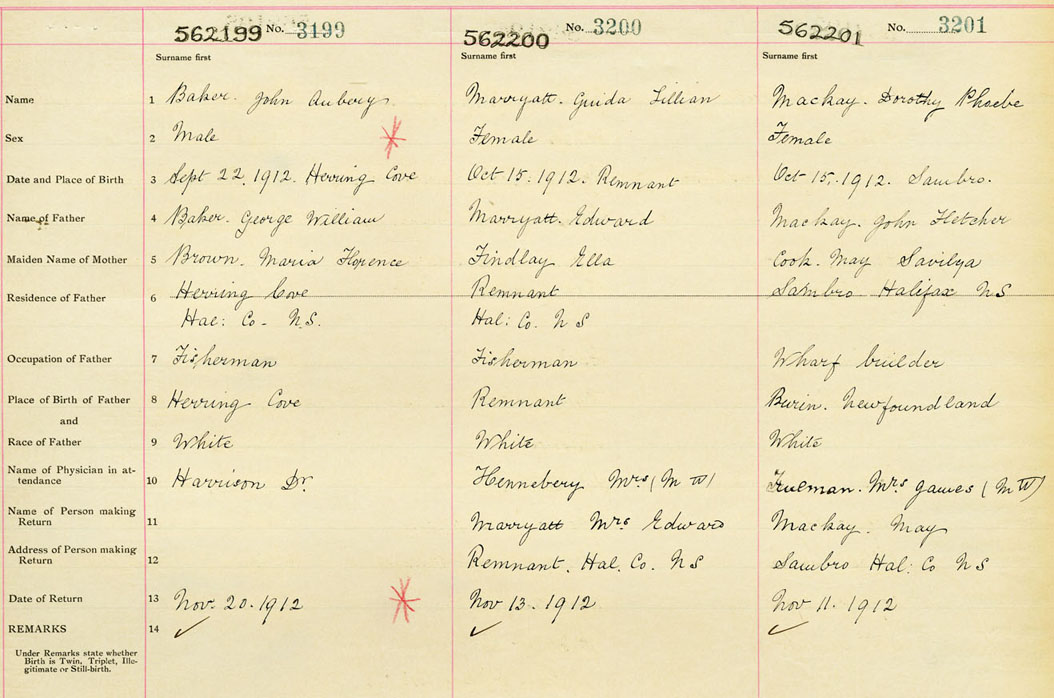 562199 No. 3199 562200 No. 3200 562201 No. 3201
Surname first Surname first Surname first
Name 1 Baker. John Aubery Marryatt. Guida Lillian Mackay. Dorothy Phoebe
Sex 2 Male Female Female
Date and Place of Birth 3 Sept 22. 1912. Herring Cove Oct 15. 1912. Remnant Oct 15. 1912. Sambro.
Name of Father 4 Baker. George William Marryatt. Edward Mackay. John Fletcher
Maiden Name of Mother 5 Brown. Maria Florence Findlay Ella Cook. May Savilya
Residence of Father 6 Herring Cove Remnant Sambro Halifax NS
Hal: Co. N.S. Hal: Co. N S
Occupation of Father 7 Fisherman Fisherman Wharf builder
Place of Birth of Father 8 Herring Cove Remnant Burin. Newfoundland
and
Race of Father 9 White White White
Name of Physician in at-
tendance 10 Harrison Dr. Hennebery Mrs (M W) Mrs James (M W)
Name of Person making
Return 11 Marryatt Mrs Edward Mackay. May
Address of Person making
Return 12 Remnant. Hal. Co. N S Sambro Hal: Co N S
Date of Return 13 Nov. 20. 1912 Nov 13. 1912 Nov 11. 1912
REMARKS 14
Under Remarks state whether
Birth is Twin, Triplet, Ille-
gitimate or Still-birth.